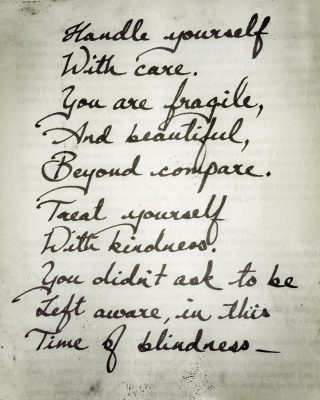 Handle yourself
With care.
You are fragile,
And beautiful,
Beyond compare.
Treat yourself
With kindness.
You didn't ask to be
Left aware, in this
Time of blindness—